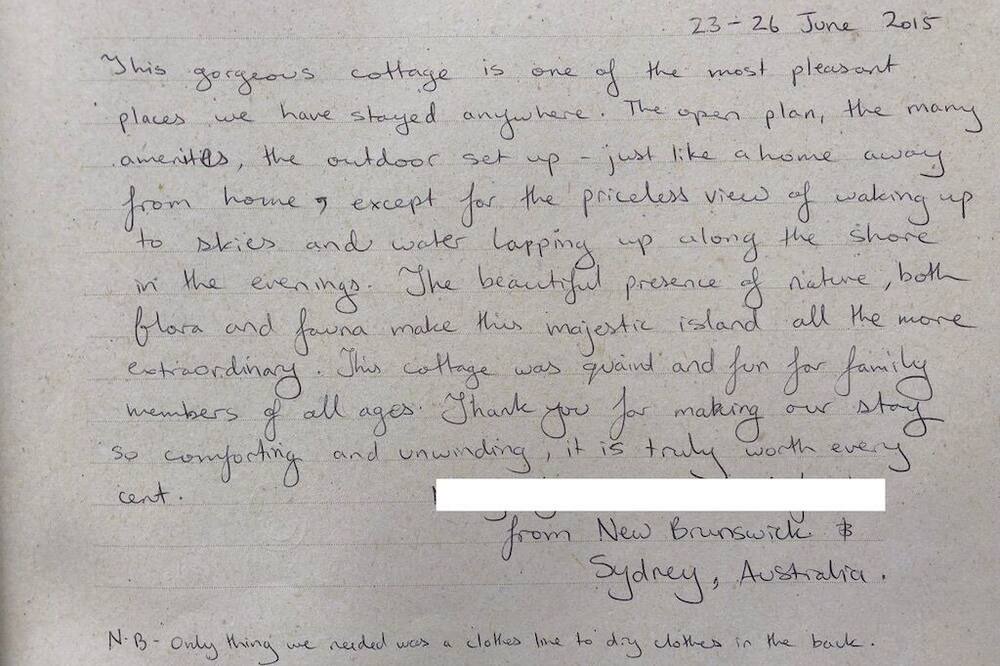 23-26 June 2015
This gorgeous cottage is one of the most pleasant
places we have stayed anywhere. The open plan, the many
amenities, the outdoor set up - just like a home away
from home, except for the priceless view of waking up
to skies and water lapping up along the shore
in the evenings. The beautiful presence of nature, both
flora and fauna make this majestic island all the more
extraordinary. This cottage was quaint and fun for family
members of all ages. Thank you for making our stay
so comforting and unwinding, it is truly worth every
cent.
from New Brunswick &
Sydney, Australia.
N.B - Only thing we needed was a clothes line to dry clothes in the back.